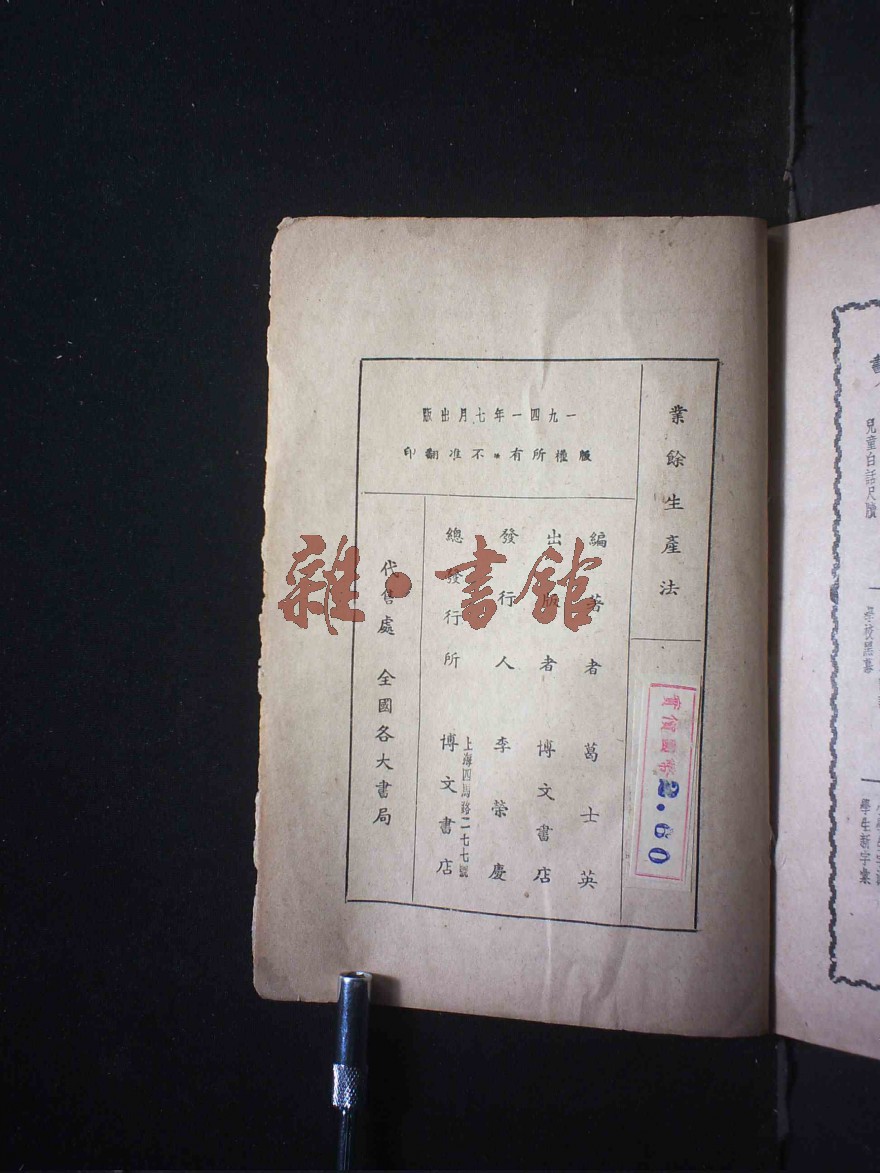 業餘生產法
一九四一年七月出版
版權所有*不准翻印
編著者 葛士英
出版者 博文書店
發行人 李榮慶
總發行所 博文書店
上海四馬路二七七號
代售處 全國各大書局
實價國幣
2.60
雜·書館
兒童白話尺牘
學校黑幕
學生新字彙